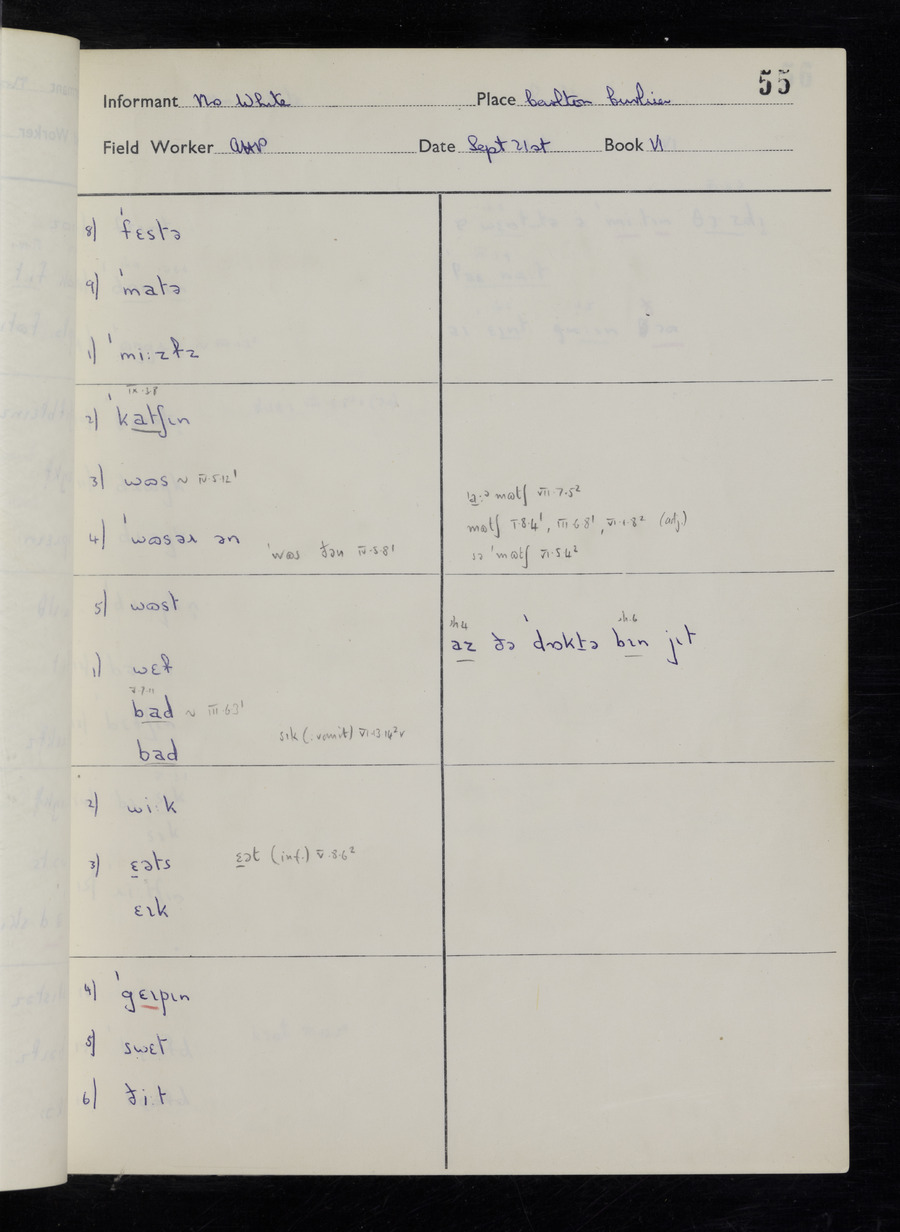 55
Informant Mo White Place Carlton Curlieu
Field Worker Date Sept 21st Book VI
8) ˈfɛstə
9) ˈmatə
1) ˈmiːzɫz
IX·3·8
2) ˈkatʃɪn
3) wɒs ~ IV·5·12¹
laːᵊ mɒtʃ VII·7·5²
mɒtʃ I·8·4¹, III·6·8¹, VI·1·8² (adj.)
4) ˈwɒsəɹ ən ˈwɒs ðən IV·5·8¹
sə ˈmɒtʃ VI·5·4²
5) wɒst
sh.4 sh.6
az ðə ˈdɒktə bɪn jɪt
1) wɛɫ
V·7·11
bad ~ III·6·3¹
sɪk (: vomit) VI·13·14²v
bad
2) wiːk
3) ɛəts ɛət (inf.) V·8·6²
ɛɪk
4) ˈgɛɪpɪn
5) swɛt
6) ðiːt